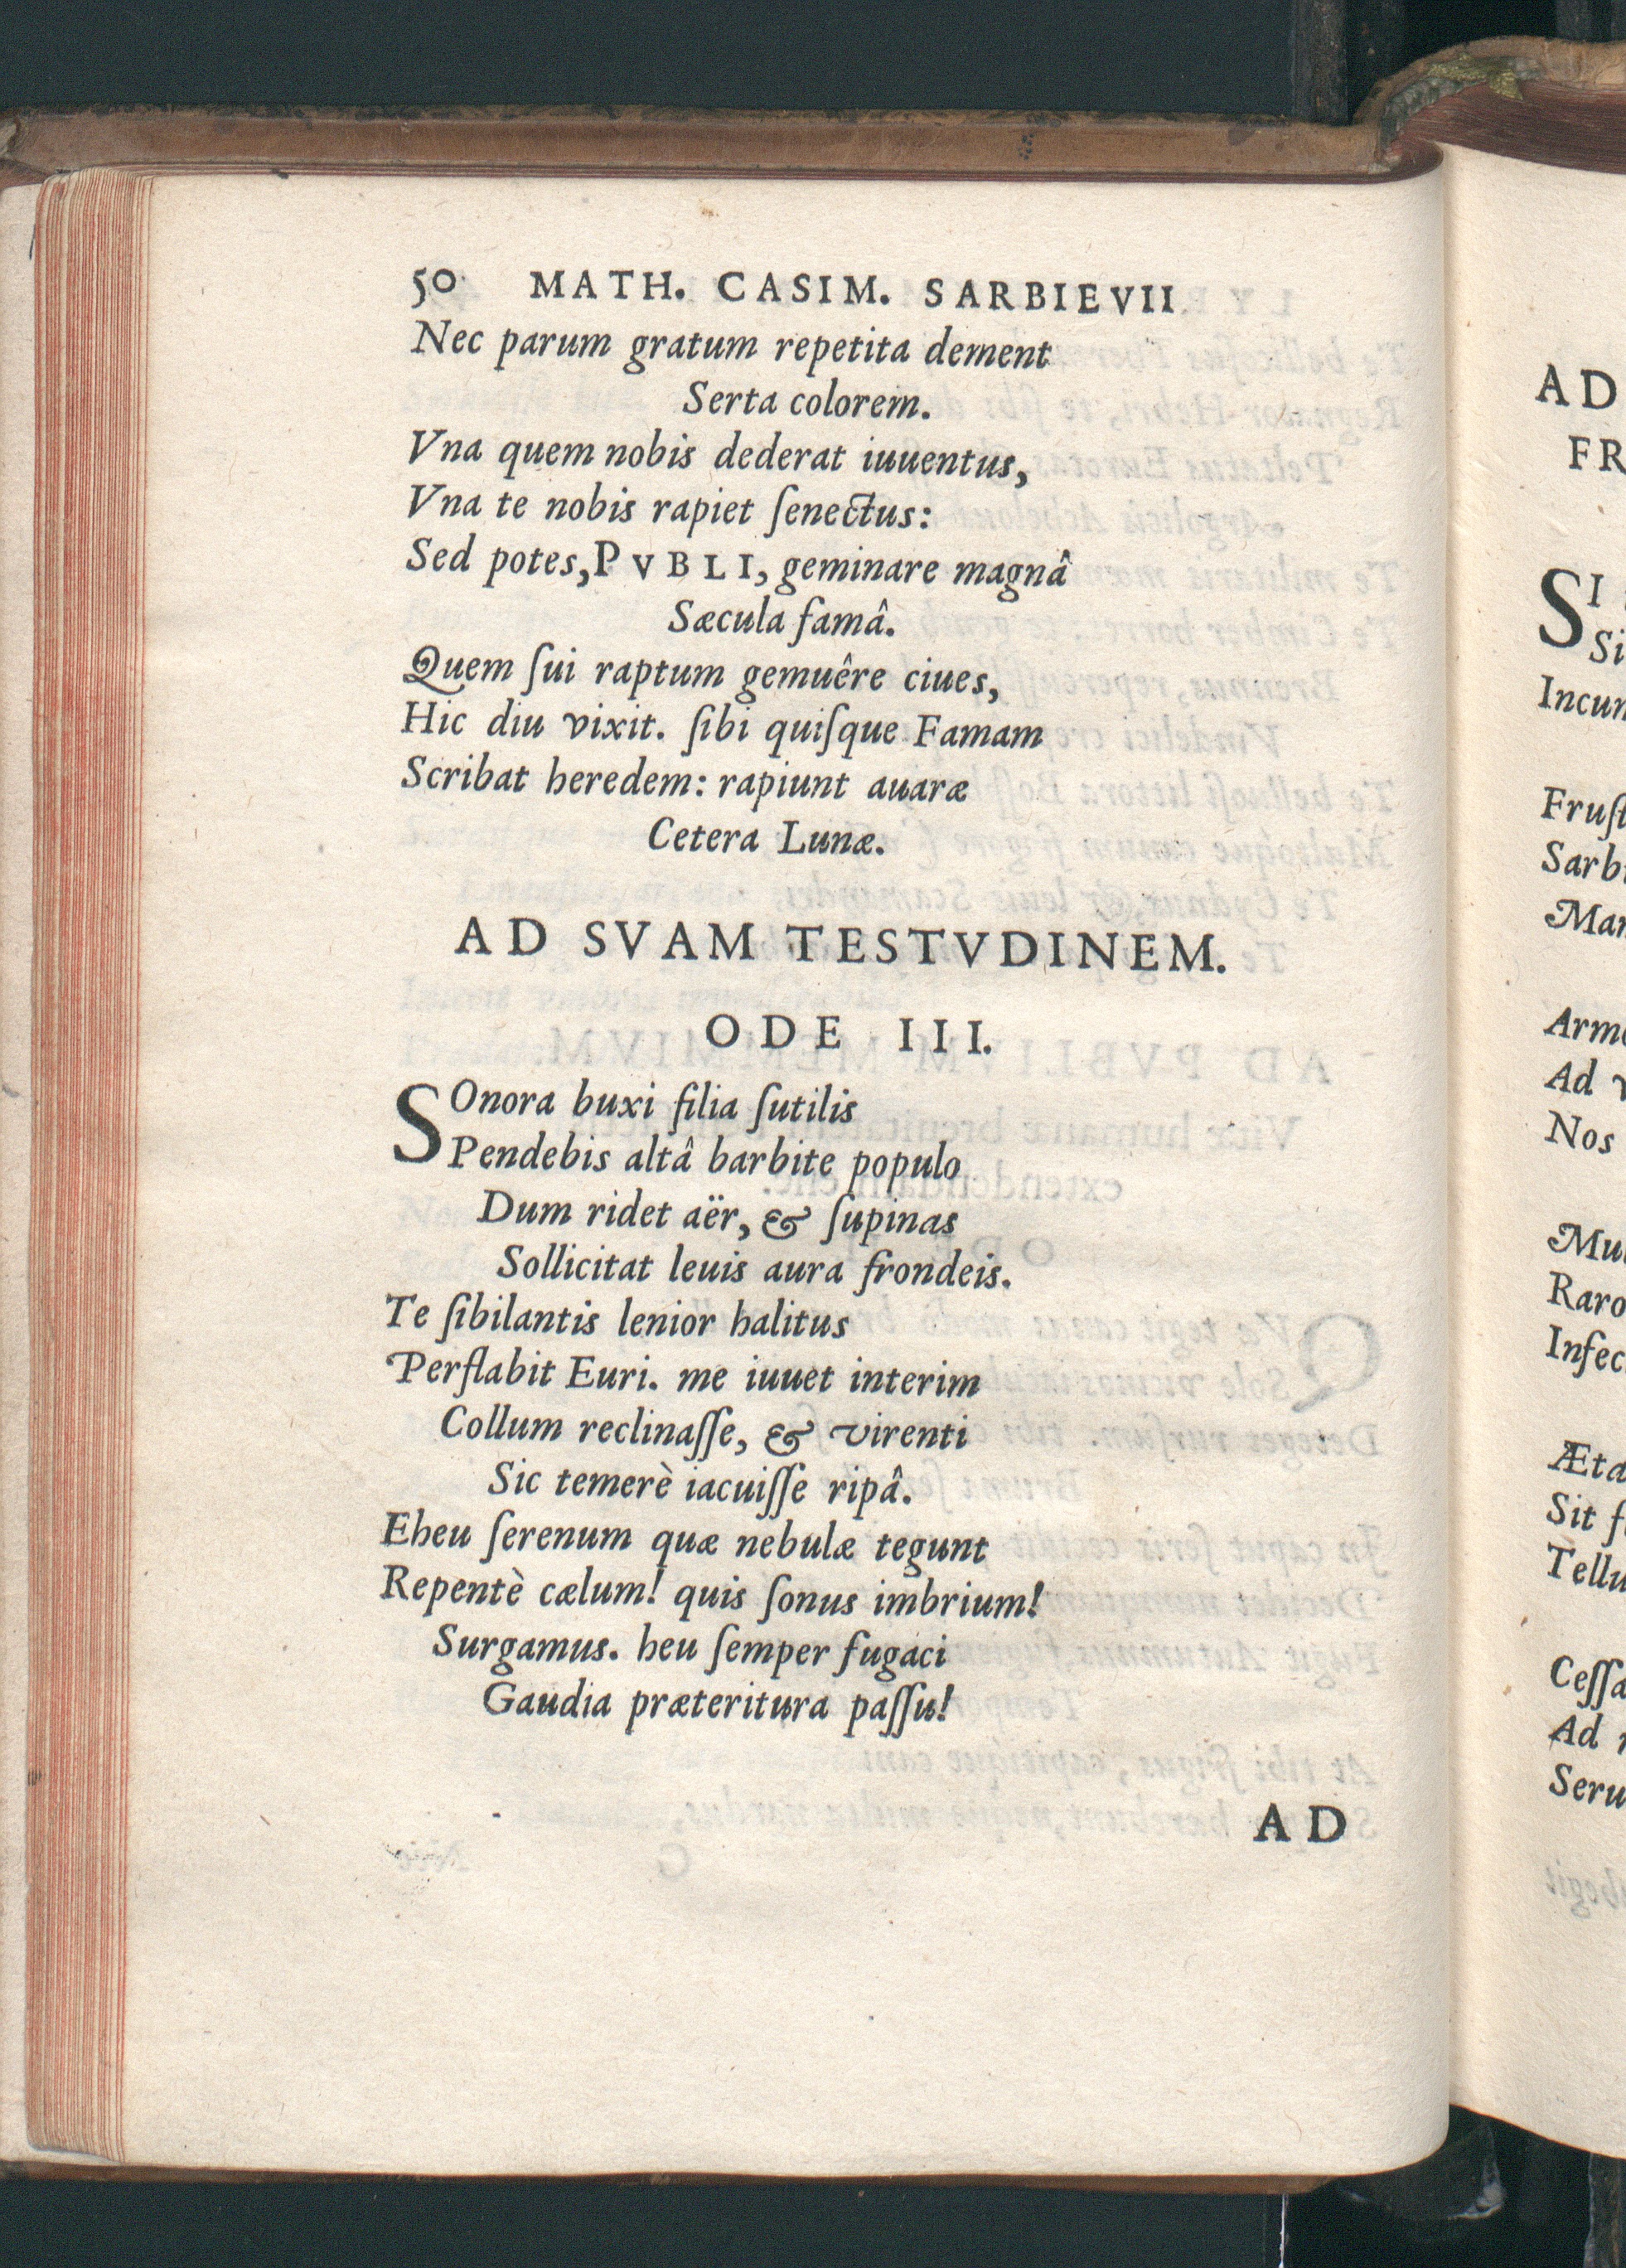 50 MATH. CASIM. SARBIEVII
Nec parum gratum repetita dement
Serta colorem.
Vna quem nobis dederat iuuentus,
Vna te nobis rapiet ſenectus:
Sed potes, PVBLI, geminare magnâ
Sæcula famâ.
Quem ſui raptum gemuêre ciues,
Hic diu vixit. ſibi quiſque Famam
Scribat heredem: rapiunt auaræ
Cetera Lunæ.
AD SVAM TESTVDINEM.
ODE III.
SOnora buxi filia ſutilis
Pendebis altâ barbite populo
Dum ridet aër, & ſupinas
Sollicitat leuis aura frondeis.
Te ſibilantis lenior halitus
Perflabit Euri. me iuuet interim
Collum reclinaſſe, & virenti
Sic temerè iacuiſſe ripâ.
Eheu ſerenum quæ nebulæ tegunt
Repentè cælum! quis ſonus imbrium!
Surgamus. heu ſemper fugaci
Gaudia præteritura paſſu!
AD
AD
FR
SI
Si
Incun
Fruſt
Sarb
Mar
Arm
Ad
Nos
Mul
Raro
Infec
Æta
Sit
Tellu
Ceſſa
Ad
Seru